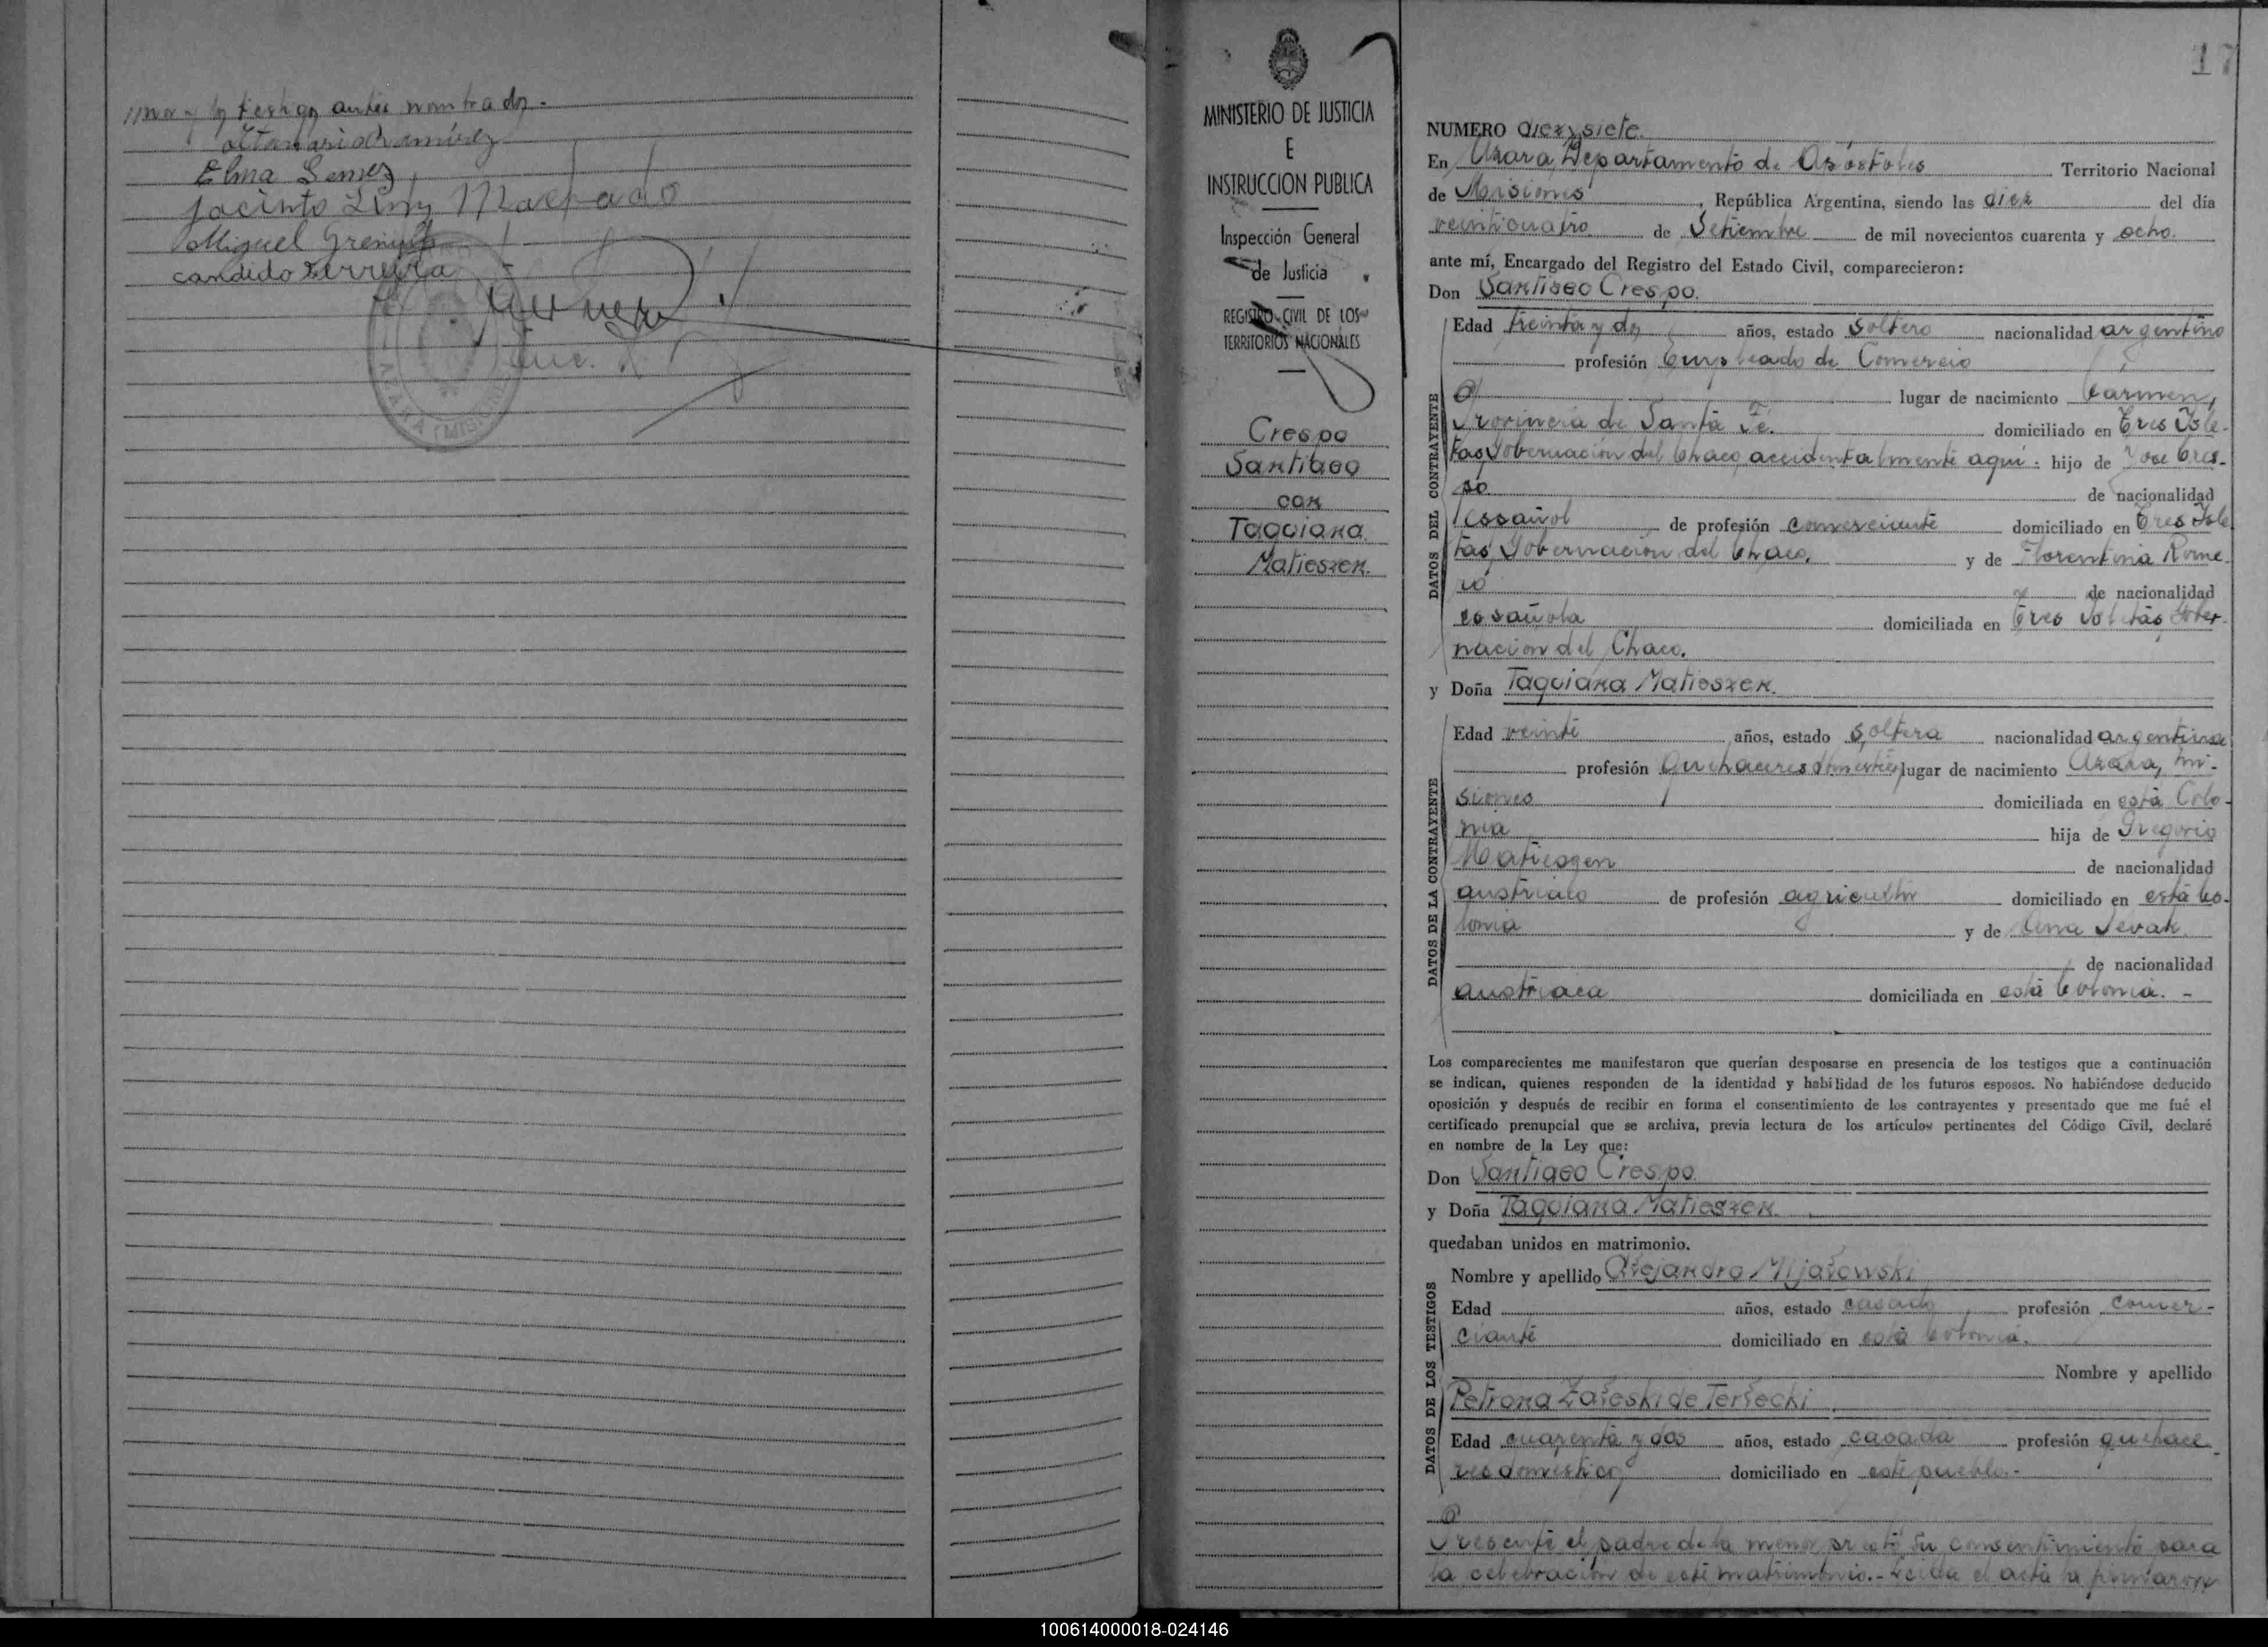 y los testigos antes nombrados.-
Elma Gomez
Jacinto Luis Machado
Miguel
candido Ferreyra
17
MINISTERIO DE JUSTICIA
E
INSTRUCCION PUBLICA
Inspección General
de Justicia
REGISTRO CIVIL DE LOS
TERRITORIOS NACIONALES
Crespo
Santiago
con
Taqoiana
Matieszen.
NUMERO diez y siete.
En Azara, Departamento de Apóstoles Territorio Nacional
de Misiones, República Argentina, siendo las diez del día
veinticuatro de Setiembre de mil novecientos cuarenta y ocho.
ante mí, Encargado del Registro del Estado Civil, comparecieron:
Don Santiago Crespo.
DATOS DEL CONTRAYENTE
Edad treinta y dos años, estado soltero nacionalidad argentino
profesión Empleado de Comercio
lugar de nacimiento Cármen,
Provincia de Santa Fé. domiciliado en Tres Isle-
tas, Gobernación del Chaco, accidentalmente aquí. hijo de José Cres-
po de nacionalidad
español de profesión comerciante domiciliado en Tres Isle
tas, Gobernación del Chaco. y de Florentina Rome-
ro de nacionalidad
española domiciliada en Tres Isletas, Gober-
nación del Chaco.
y Doña Taqoiana Matieszen.
DATOS DE LA CONTRAYENTE
Edad veinte años, estado soltera nacionalidad argentina
profesión Quehaceres domésticos lugar de nacimiento Azara, Mi-
siones domiciliada en esta Colo-
nia hija de Gregorio
Matieszen de nacionalidad
austriaco de profesión agricultor domiciliado en esta Co-
lonia y de Ana
de nacionalidad
austriaca domiciliada en esta Colonia. -
Los comparecientes me manifestaron que querían desposarse en presencia de los testigos que a continuación
se indican, quienes responden de la identidad y habilidad de los futuros esposos. No habiéndose deducido
oposición y después de recibir en forma el consentimiento de los contrayentes y presentado que me fué el
certificado prenupcial que se archiva, previa lectura de los artículos pertinentes del Código Civil, declaré
en nombre de la Ley que:
Don Santiago Crespo.
y Doña Taqoiana Matieszen.
quedaban unidos en matrimonio.
DATOS DE LOS TESTIGOS
Nombre y apellido Alejandro Mijałowski
Edad años, estado casado profesión comer-
ciante domiciliado en esta Colonia.
Nombre y apellido
Petrona Załeski de Terłecki
Edad cuarenta y dos años, estado casada profesión quehace-
res domésticos domiciliado en este pueblo.-
Presente el padre de la menor prestó su consentimiento para
la celebración de este matrimonio.- Leída el acta la firmaron
100614000018-024146